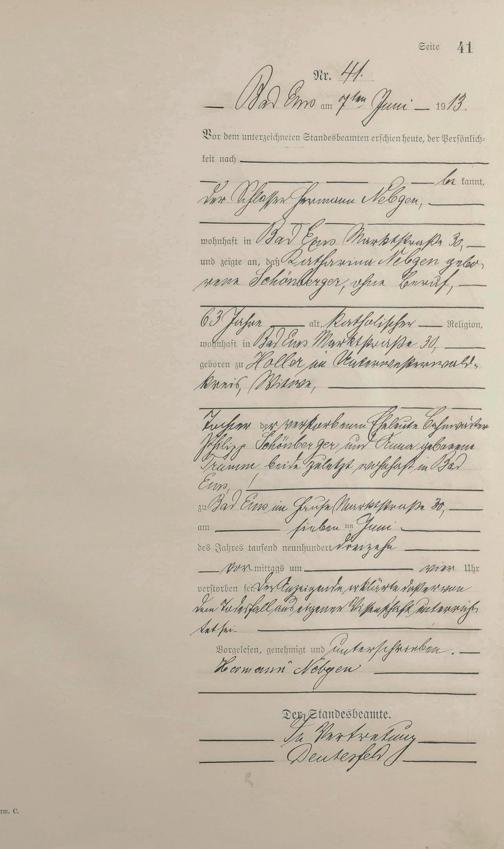 Seite 41
Nr. 41.
Bad Ems am 7ten Juni 1913.
Vor dem unterzeichneten Standesbeamten erschien heute, der Persönlich-
keit nach
bekannt,
der Schlosser Hermann Nebgen,
wohnhaft in Bad Ems Marktstraße 30,
und zeigte an, daß Katharina Nebgen gebo-
rene Schönberger, ohne Beruf,
63 Jahre alt, katholischer Religion,
wohnhaft in Bad Ems Marktstraße 30,
geboren zu Holler im Unterwesterwald-
kreis, Witwe,
Tochter der verstorbenen Eheleute Bahnwärter
Philipp Schönberger und Anna geborene
beide zuletzt wohnhaft in Bad
Ems,
zu Bad Ems im Hause Marktstraße 30,
am sieben ten Juni
des Jahres tausend neunhundert dreizehn
vor mittags um vier Uhr
verstorben sei. Der Anzeigende erklärte daß er von
dem Todesfall aus eigener Wissenschaft unterrich-
tet sei.
Vorgelesen, genehmigt und unterschrieben.
Hermann Nebgen
Der Standesbeamte.
In Vertretung
rm. C.